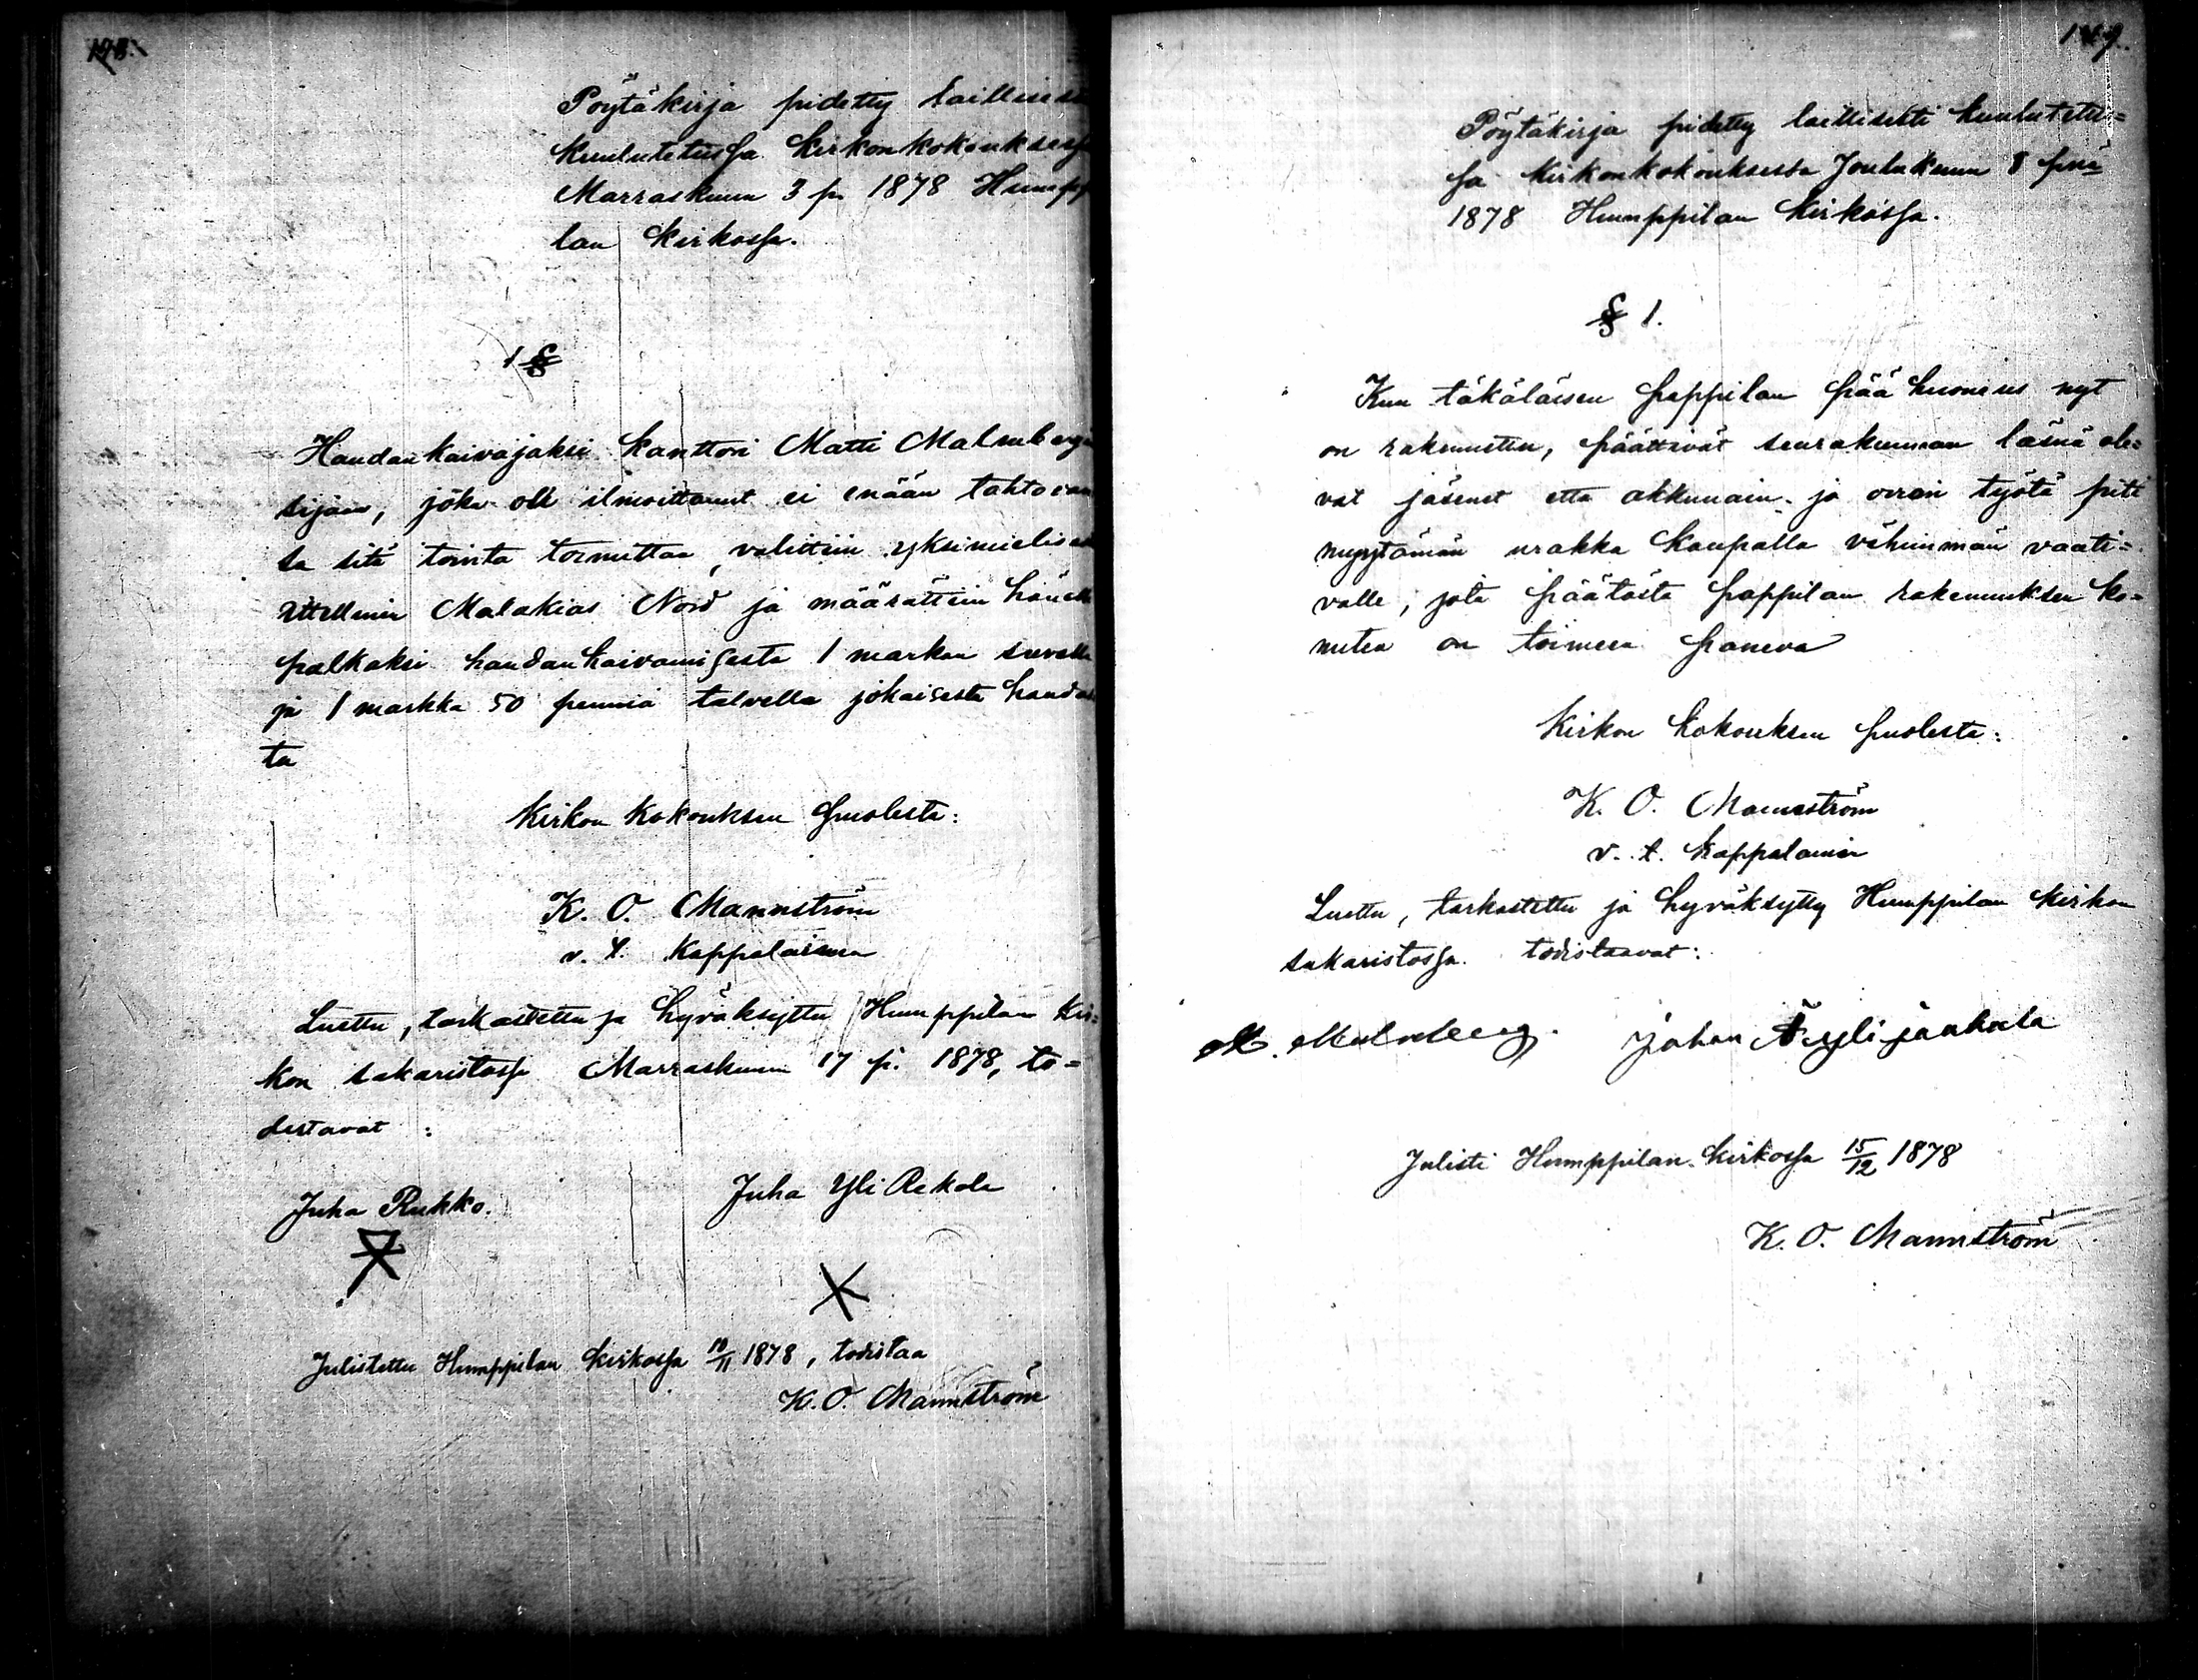 Pöytäkirja pidetty laillisesti
kuulutetussa kirkonkokouksessa
Marraskuun 3 p. 1878 Humppi
lan kirkossa.
1 §
Haudankaivajaksi kanttori Matti Malmbergin
sijaan, joka oli ilmoittanut ei enään tahtovan
sa sitä tointa toimittaa, valittiin yksimielises
Malakias Nord ja määrättiin hänelle
palkaksi haudankaivamisesta 1 markan suvella
ja 1 markka 50 penniä talvella jokaisesta haudas
ta
Kirkon kokouksen puolesta:
K. O. Mannström
v. t. Kappalainen
Luettu, tarkastettu ja hyväksyttu Humppilan kir=
kon sakaristossa Marraskuun 17 p. 1878, to=
distavat :
Juha Rukko. Juha Yli Rekola
Julistettu Humppilan kirkossa 10/11 1878, todistaa
K. O. Mannström
Pöytäkirja pidetty laillisesti kuulutetu=
ssa kirkonkokouksessa Joulukuun 8 pnä
1878 Humppilan kirkossa.
§ 1.
Kun täkäläisen pappilan päähuoneus nyt
on rakennettu, päättivät seurakunnan läsnä ole=
vat jäsenet että akkunain ja ovien työtä pitä
myytämän urakka kaupalla vähimmän vaati=
valle, jota päätöstä pappilan rakennuksen ko=
mitea on toimeen paneva
Kirkon kokouksen puolesta:
K. O. Mannström
v. t. kappalainen
Luettu, tarkastettu ja hyväksytty Humppilan kirkon
sakaristossa todistaavat:
M. Malmberg. Johan Yli jaakola
Julisti Humppilan kirkossa 15/12 1878
K. O. Mannström